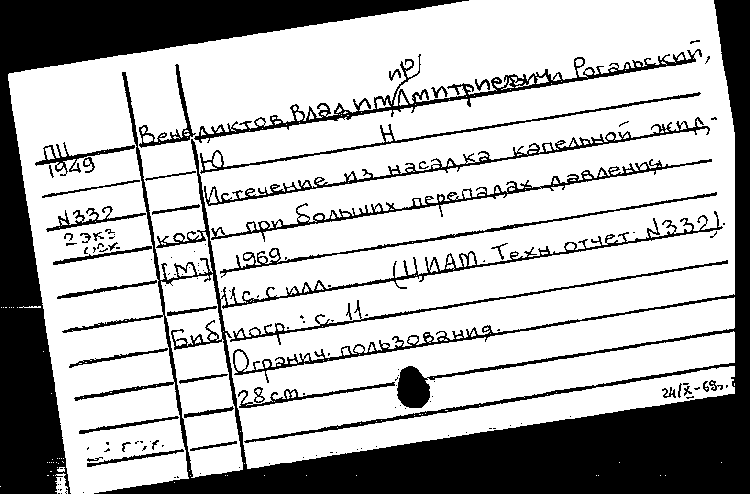 пр
Венедиктов, Владимир Дмитриевич и Рогальский,
ПЦ
1949
Ю Н
Истечение из насадка капельной жид-
N332
2 экз кости при больших перепадах давления.
[М.], 1969.
11 с. с илл. (ЦИАМ. Техн. отчет. N332).
Библиогр.: с. 11.
Огранич. пользования.
28 cm.
24/X-69г.